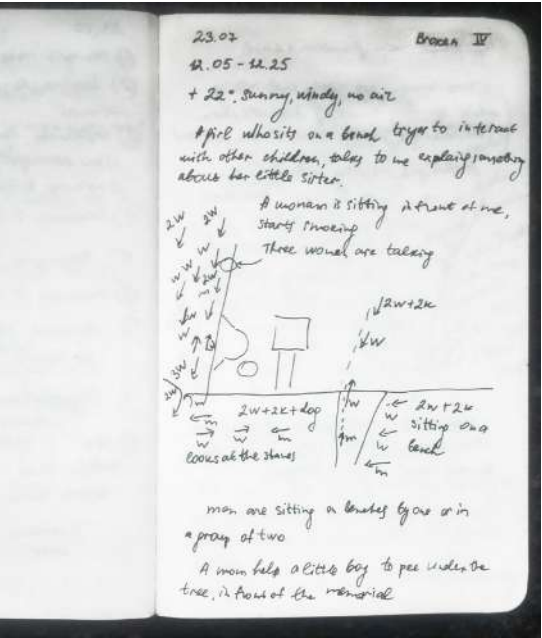 23.07
Broken IV
12.05 - 12.25
+ 22°, sunny, windy, no air
A girl who sits on a bench tryes to interact
with other children, talks to me explaing something
about her little sister.
A woman is sitting in front of me,
starts smoking
Three women are talking
2w 2w
w w
w w 2w
m
w
w
3w
2w
m
2w+2k
w
m 2w+2k+dog w 2w+2k
w w m m w sitting on a
looks at the stones w bench
m
men are sitting on benches by one or in
a group of two
A mom help a little boy to pee under the
tree, in front of the memorial